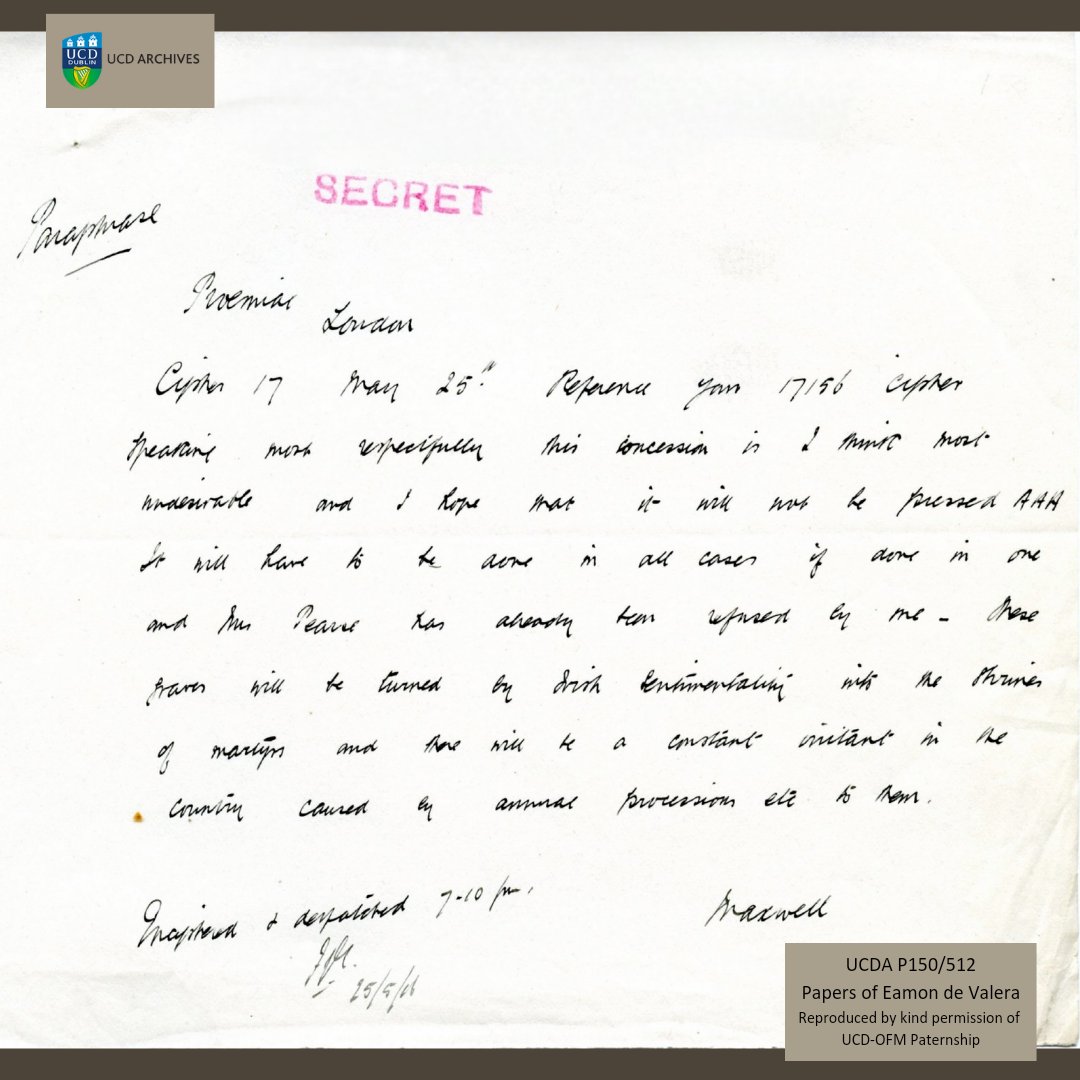 UCD
DUBLIN
UCD ARCHIVES
SECRET
Paraphrase
Proemial
London
Cipher 17 May 25th Reference your 17156 cipher
Speaking most respectfully this concession is I think most
undesirable and I hope that it will not be pressed AAA
It will have to be done in all cases if done in one
and Mrs Pearse has already been refused by me - These
graves will be turned by Irish sentimentality into the shrines
of martyrs and there will be a constant irritant in the
country caused by annual processions etc to them.
Enciphered & despatched 7-10 pm.
Maxwell
25/5/16
UCDA P150/512
Papers of Eamon de Valera
Reproduced by kind permission of
UCD-OFM Paternship